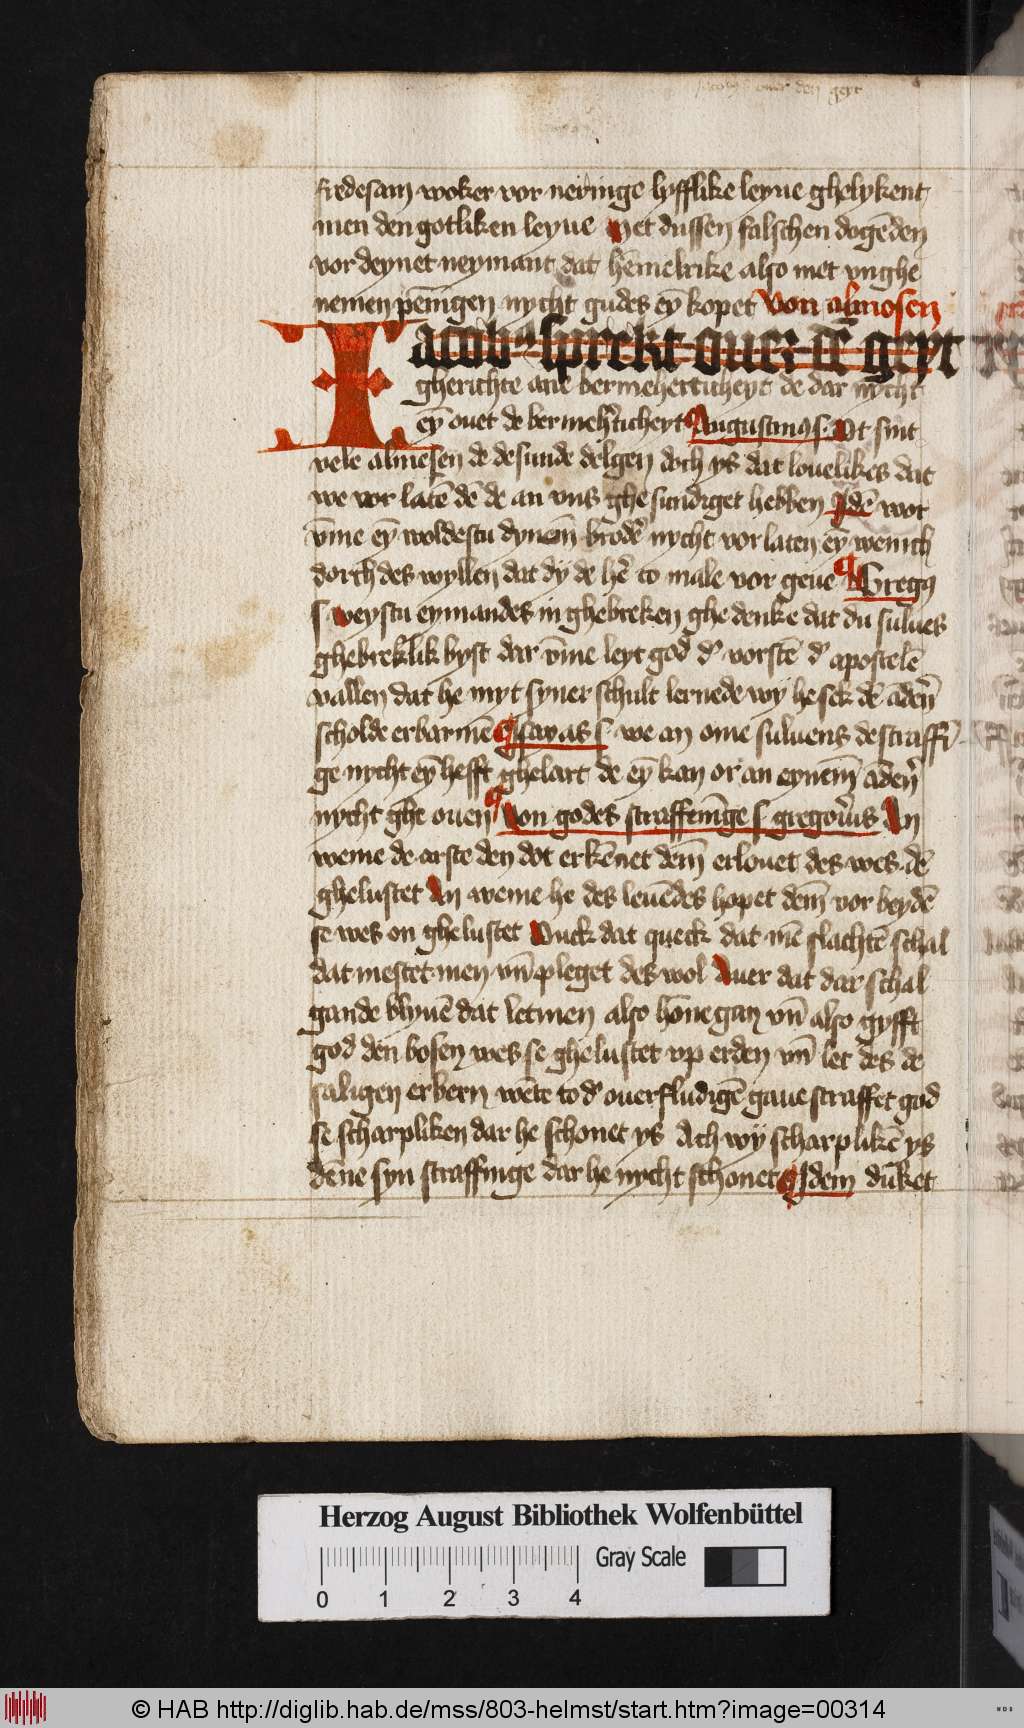 jacobus ouer den geyt
redesam woker vor neringe lyfflike leyue ghelykent
men den gotliken leyue Met dussen falschen dogēden
vor deynet neymant dat hēmelrike also met vnghe
nemen pēnigen nycht gudes eȳ kopet Von almosen
Jacobꝰ sprekt ouer dē geyt
gherichte ane bermeherticheyt de dar nycht
eȳ ouet de bermehˀticheyt Augustinus s. Vt sint
vele almesen de de sunde delgen doch ys dat louelikes dat
we vor latē dē de an vns ghe sundiget hebben Jdē wor
v̄me eȳ woldestu dynem brodˀ nycht vor laten eȳ wenich
dorch des wyllen dat dy de hˀe to male vor geue ¶ Gregꝰ
s. weystu eymandes in ghebreken ghe denke dat du sulues
ghebreklik byst dar v̄me leyt god dˀ vorstē dˀ apostelē
vallen dat he myt syner schult lernede wy he sek dē ādeṅ
scholde erbarmē ¶ Jsayas s. we an ome suluens de straffī
ge nycht eȳ hefft ghelart de eȳ kan or an eynem̄ ādeṅ
nycht ghe ouen ¶ Von godes straffenīge s gregorius An
weme de arste den dot erkēnet dem̄ erlouet des wes dē
ghelustet An weme he des leuēdes hopet dem̄ vor beydē
se wes on ghelustet Vuck dat queck dat mē slachtē schal
dat mestet men vn̄ pleget des wol Auer dat dar schal
gande blyuē dat letmen also hōne gan vn̄ also gyfft
god den bosen wes se ghelustet vp erden vn̄ let des de
saligen erbern wēte to dˀ ouerfludigē gaue straffet god
se scharpliken dar he schonet ys Ach wy scharplikē ys
dēne syn straffinge dar he nycht schonet ¶ Jdem dūket
Herzog August Bibliothek Wolfenbüttel
0 1 2 3 4 Gray Scale
© HAB http://diglib.hab.de/mss/803-helmst/start.htm?image=00314